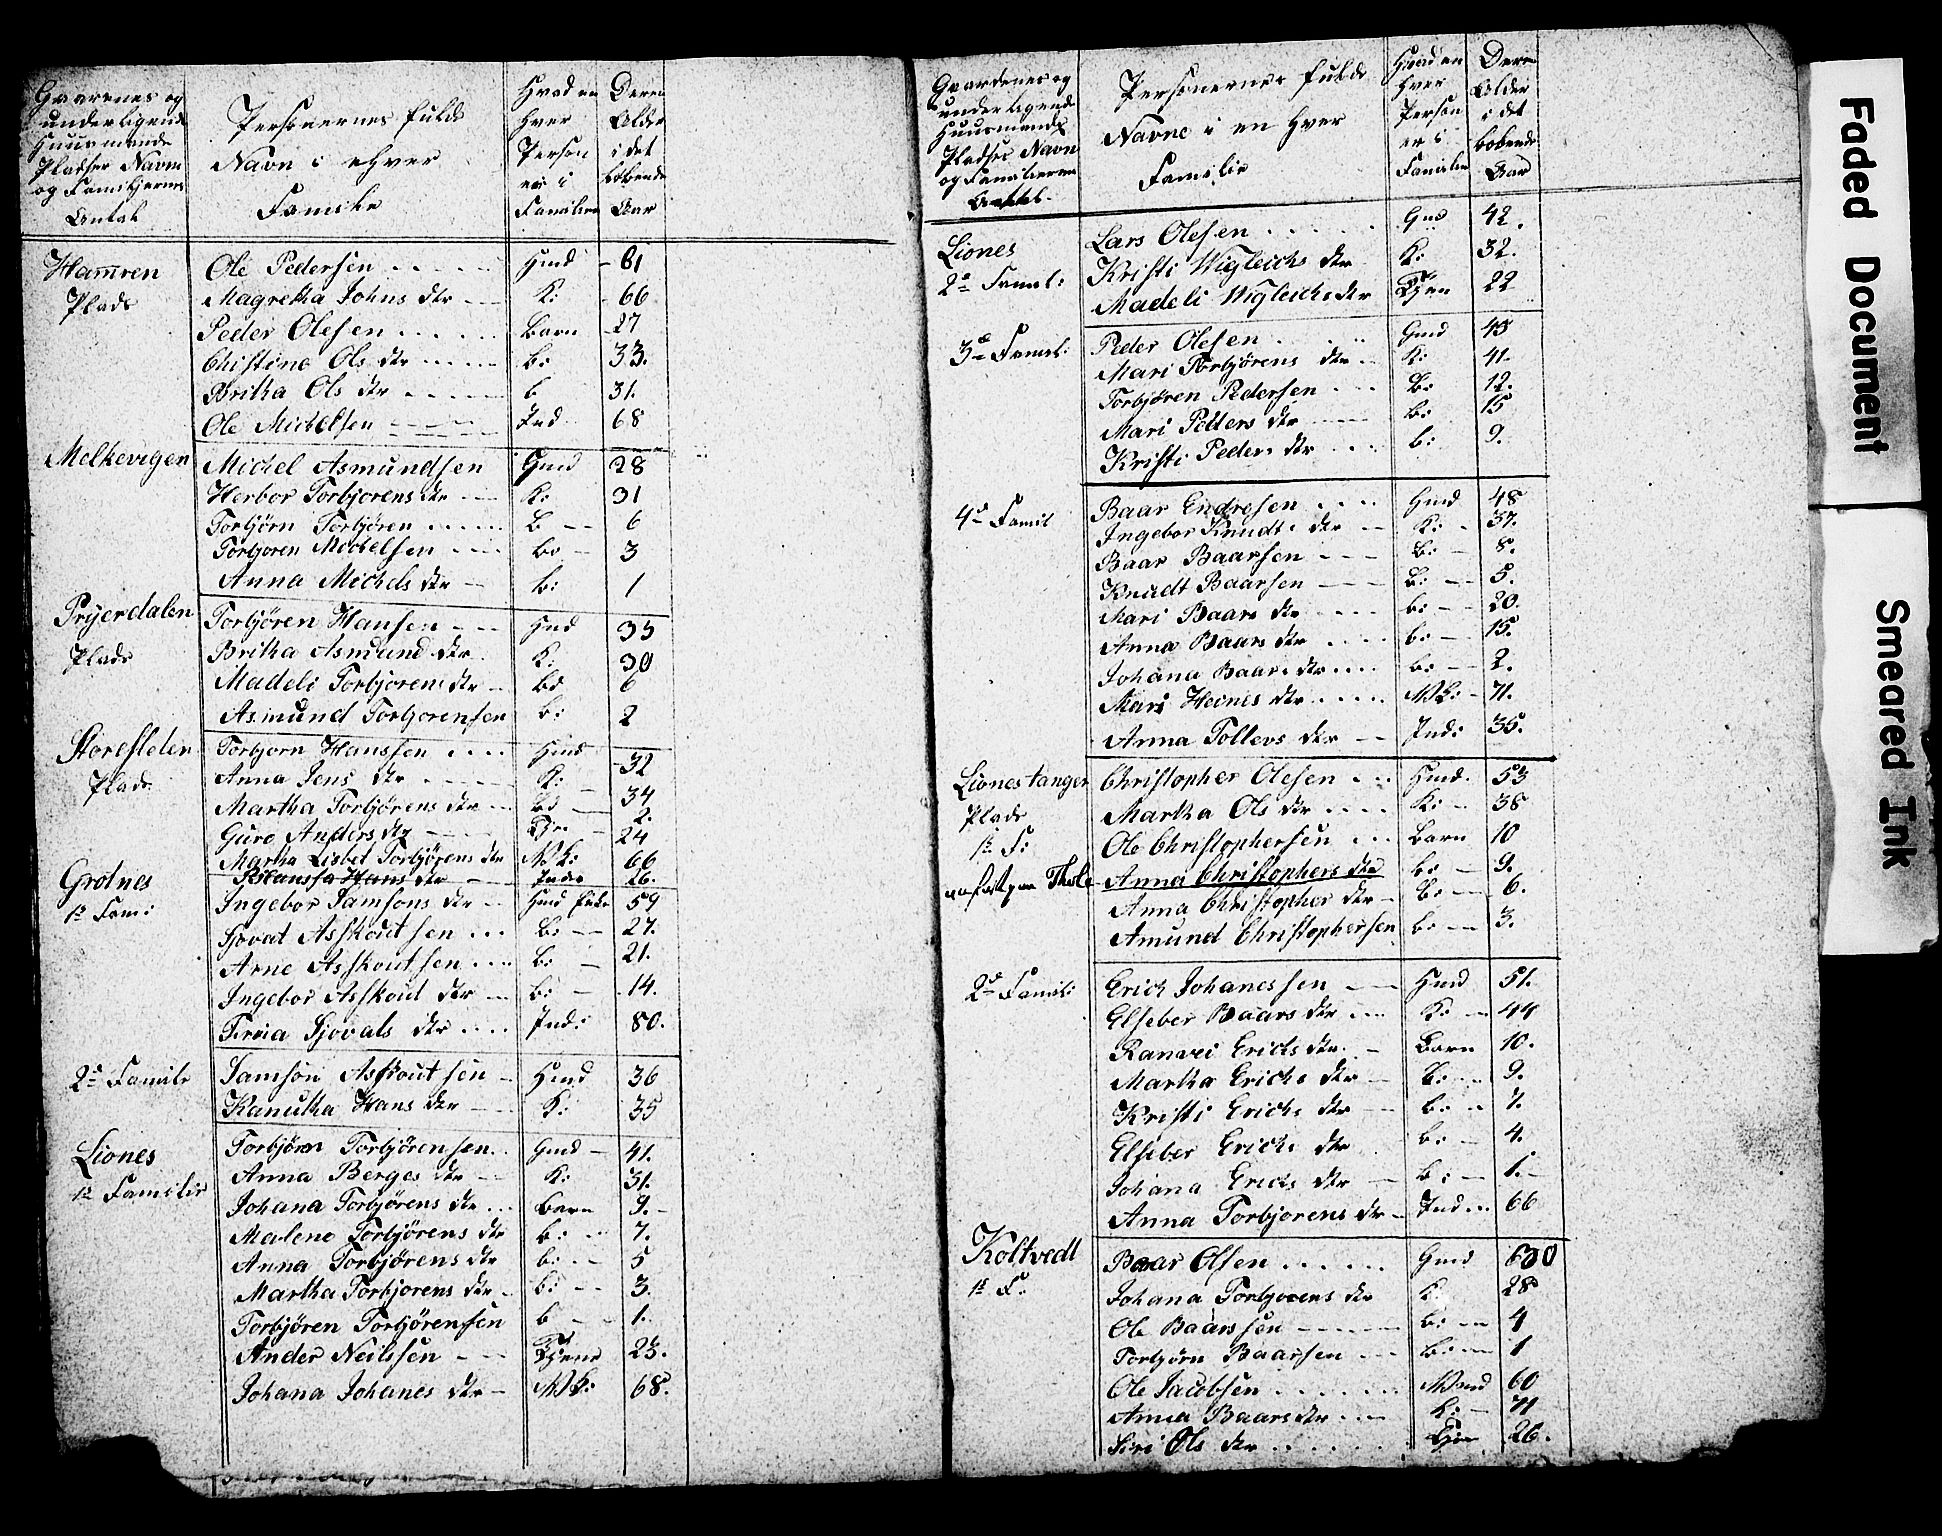 Gaarenes og
underligende
Huusmænds
Pladser Navne
og Familjernes
Antal
Personernes fulde
Navn i ehver
Familie
Hvad en
hver
Person
er i
Familien
Deres
Alder
i det
løbende
Aar
Hamren Ole Pedersen Hmd 61
Plads Magretha Johns dtr K: 66
Peder Olesen Barn 27
Christine Ols dtr b: 33.
Britha Ols dtr b 31.
Ole Michelsen Ind 68
Melkevigen Michel Asmundsen Gmd 28
Herbor Torbjorens dtr K: 31
Torbjörn Torbjören B 6
Torbjoren Michelsen b: 3
Anna Michels dtr b: 1
Pryerdalen Torbjören Hansen Hmd 35
Plads Britha Asmund dtr K: 30
Madeli Torbjorens dtr b: 6
Asmund Torbjorensen b: 2
Storesleten Torbjorn Hanssen Hmd 32
Plads Anna Jens dtr K: 34
Martha Torbjørens dtr b: 2.
Guro Anders dtr Tje: 24
Martha Lisbet Torbjörens dtr M K: 66
Hans dtr Inds 26.
Grotnes Ingebor Samsons dtr Hmd Enke 59
1e Fam: Sjovat Asskoutsen b: 27.
Arne Asskoutsen b: 21.
Ingebor Asskout dtr b: 14.
Sjovats dtr Ind: 80.
2e Famile Samson Asskoutsen Hmd 36
Kanutha Hans dtr K: 35
Liones Torbjørn Torbjørensen Gmd 41.
1e Familie Anna Berges dtr K: 31.
Johana Torbjørens dtr barn 9.
Malene Torbjörens dtr b: 7.
Anna Torbjørens dtr b: 5
Martha Torbjorens dtr b: 3.
Torbjören Torbjörensen b 1.
Ander Neilssen Tjene 23.
Johana Johanes dtr M K: 68.
Gaardenes og
underligende
Huusmænds
Pladser Navn
og Familiernes
Antal
Personernes fulde
Navne i en hver
Familie
Hvad en
hver
Person
er i
Familien
Deres
Alder
i det
løbende
Aar
Liones Lars Olesen Gmd 42.
2e Famil: Kristi Wigleichs dtr K: 32.
Madeli Wigleichs dtr Tjen 22
3e Famil: Peder Olesen Gmd 45
Mari Torbjörens dtr K: 41.
Torbjören Pedersen b: 12.
Mari Peders dtr b: 15
Kristi Peders dtr b: 9.
4e Famil Baar Endresen Hmd 48
Ingebor Knudts dtr K: 37.
Baar Baarsen b: 8.
Knudt Baarsen b: 5.
Mari Baars dtr b: 20.
Anna Baars dtr b: 15.
Johana Baars dtr b: 2.
Mari Heines dtr M K: 71.
Anna Tollevs dtr Ind: 35.
Lionestanger Christopher Olesen Hmd. 53
Plads Martha Ols dtr K: 38
1e F: Ole Christophersen Barn 10
Anna Christophers dtr b: 9.
Anna Christopher dtr b: 6.
Amund Christophersen b: 3.
2e Famil: Erich Johanessen Hmd 51.
Elseber Baars dtr K: 44
Ranvei Erichs dtr Barn 10.
Martha Erichs dtr b: 9.
Kristi Erichs dtr b: 7.
Elseber Erichs dtr b: 4.
Johana Erichs dtr b: 1.
Anna Torbjorens dtr Ind 66
Koltvedt Baar Olsen Gmd 630
1e F: Johana Torbjorens dtr K: 28
Ole Baarssen b: 4
Torbjørn Baarsen b: 1
Ole Jacobsen Mand 60
Anna Baars dtr K: 71
Siri Ols dtr Tje 26.
Faded Document
Smeared Ink